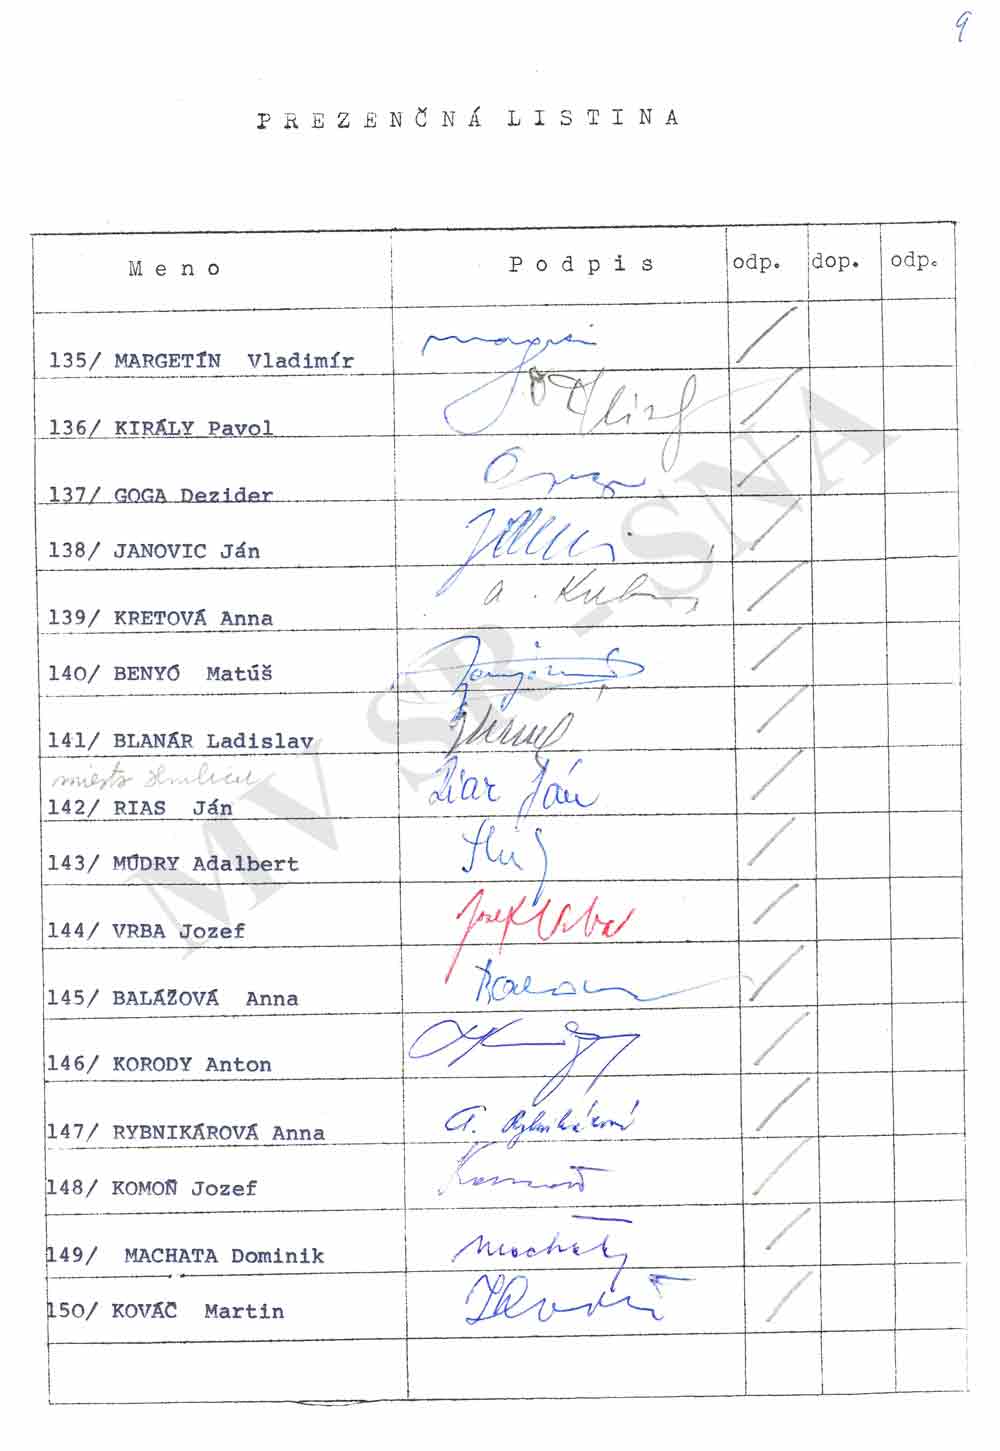 9
PREZENČNÁ LISTINA
Meno Podpis odp. dop. odp.
135/ MARGETÍN Vladimír
136/ KIRÁLY Pavol
137/ GOGA Dezider
138/ JANOVIC Ján
139/ KRETOVÁ Anna
140/ BENYÓ Matúš
141/ BLANÁR Ladislav
miesto
142/ RIAS Ján Riar Ján
143/ MÚDRY Adalbert
144/ VRBA Jozef Jozef Vrba
145/ BALÁŽOVÁ Anna
146/ KORODY Anton
147/ RYBNIKÁROVÁ Anna A. Rybnikárová
148/ KOMOŇ Jozef
149/ MACHATA Dominik
150/ KOVÁČ Martin
MV SR - SNA